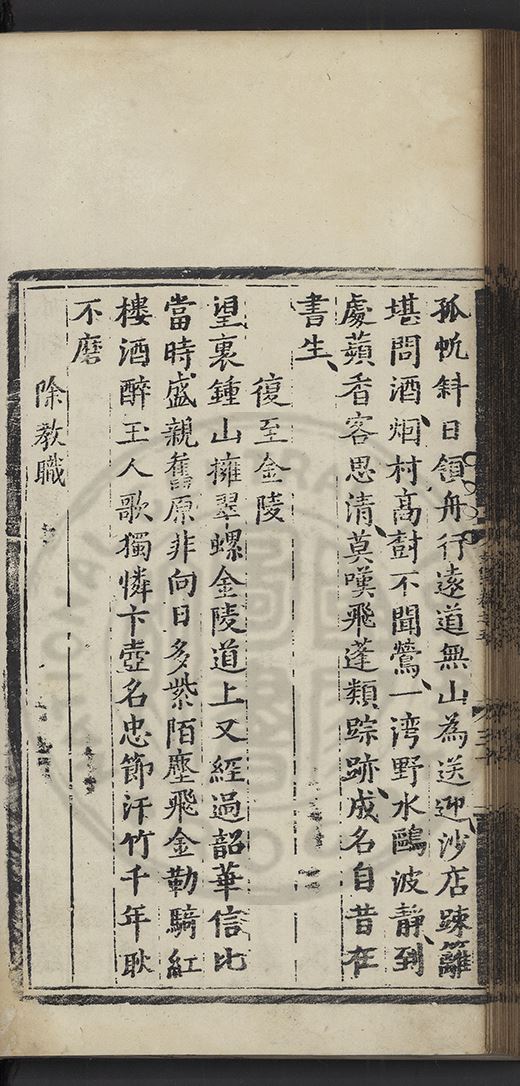 孤帆斜日領舟行遠道無山為送迎沙店踈籬
堪問酒烟村高樹不聞鶯一湾野水鷗波静到
處蘋香客思清莫嘆飛蓬類踪跡成名自昔在
書生
復至金陵
望裏鍾山擁翠螺金陵道上又經過韶華信比
當時盛親舊原非向日多紫陌塵飛金勒騎紅
樓酒醉玉人歌獨憐卞壺名忠節汗竹千年耿
不磨
除教職